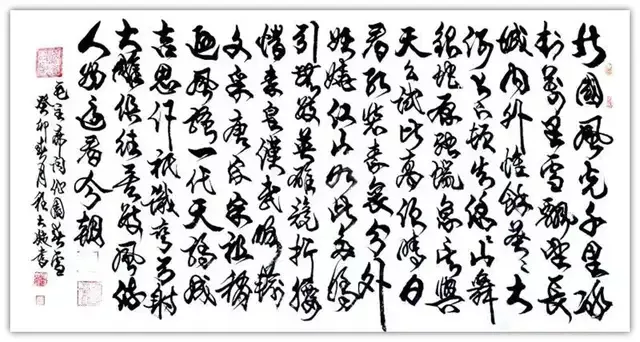 北國風光千里冰
封萬里雪飄望長
城內外惟餘莽々大
河上下頓失滔々山舞
銀蛇原馳蠟象欲與
天公試比高須晴日
看紅裝素裹分外
妖嬈江山如此多嬌
引無數英雄競折腰
惜秦皇漢武略輸
文采唐宗宋祖稍
遜風騷一代天驕成
吉思汗衹識彎弓射
大雕俱往矣數風流
人物還看今朝
毛主席詞沁園春雪
癸卯秋月書